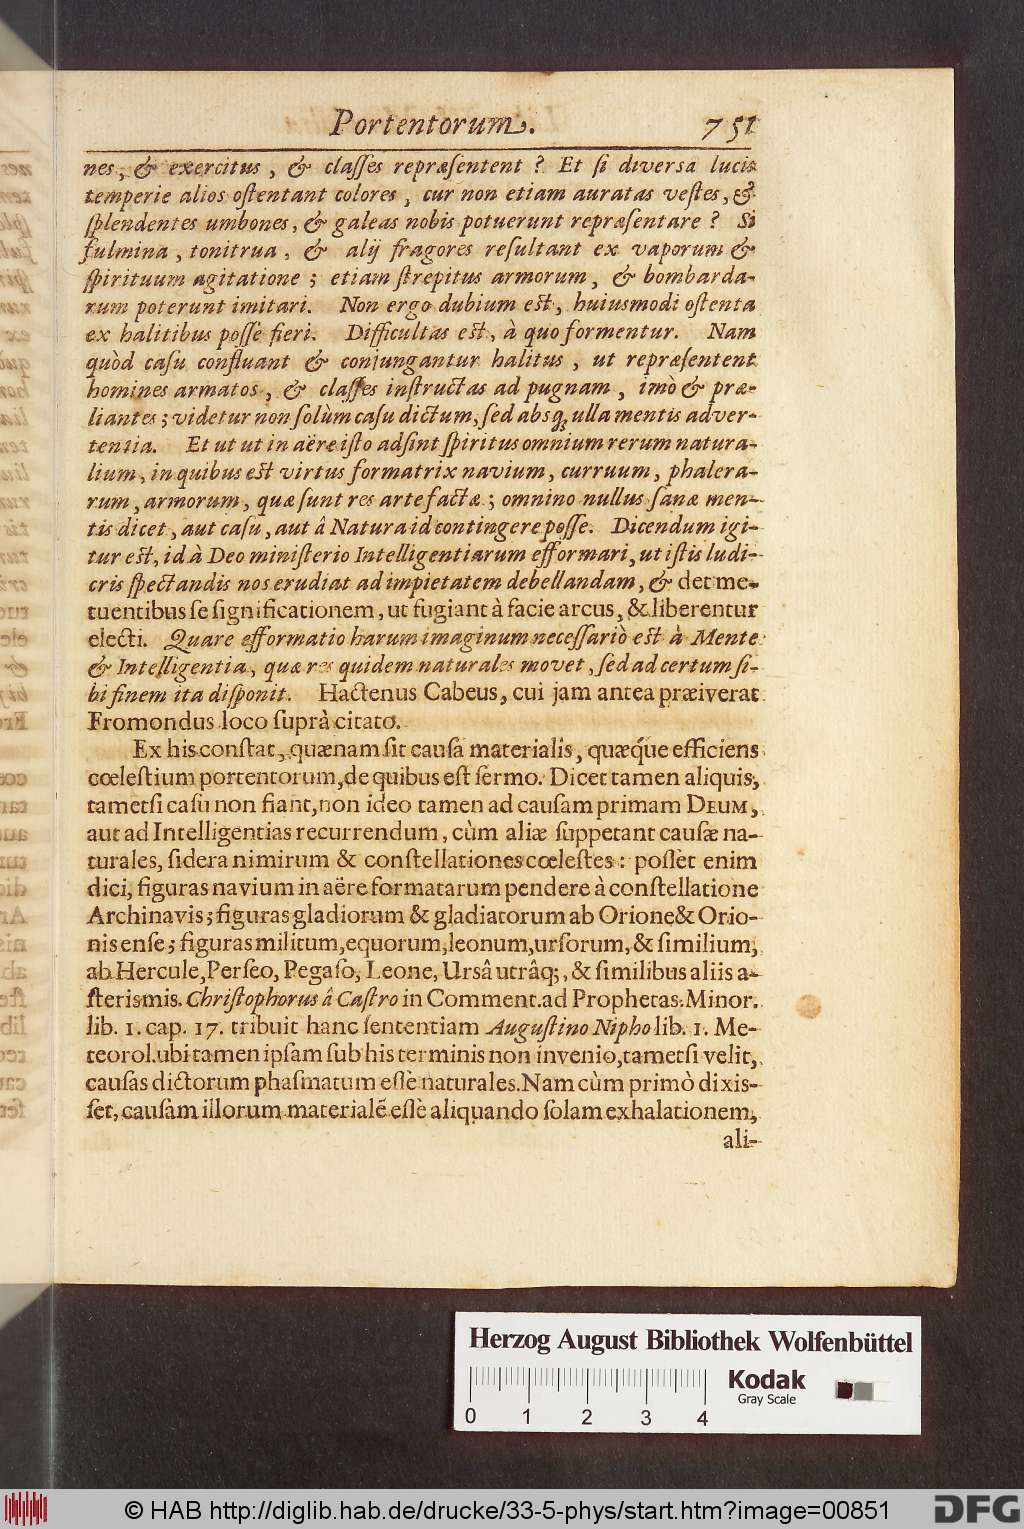 Portentorum. 751
nes, & exercitus, & claſſes repræſentent? Et ſi diversa lucis
temperie alios oſtentant colores, cur non etiam auratas veſtes, &
ſplendentes umbones, & galeas nobis potuerunt repræſentare? Si
fulmina, tonitrua, & alij fragores reſultant ex vaporum &
ſpirituum agitatione; etiam ſtrepitus armorum, & bombarda-
rum poterunt imitari. Non ergo dubium eſt, huiusmodi oſtenta
ex halitibus poſſe fieri. Difficultas eſt, à quo formentur. Nam
quòd caſu confluant & conjungantur halitus, ut repræſentent
homines armatos, & claſſes inſtructas ad pugnam, imò & præ-
liantes; videtur non ſolùm caſu dictum, ſed absq; ulla mentis adver-
tentia. Et ut ut in aëre iſto adſint ſpiritus omnium rerum natura-
lium, in quibus eſt virtus formatrix navium, curruum, phalera-
rum, armorum, quæ ſunt res arte factæ; omnino nullus ſanæ men-
tis dicet, aut caſu, aut â Natura id contingere poſſe. Dicendum igi-
tur eſt, id à Deo miniſterio Intelligentiarum efformari, ut iſtis ludi-
cris ſpectandis nos erudiat ad impietatem debellandam, & det me-
tuentibus ſe ſignificationem, ut fugiant à facie arcus, & liberentur
electi. Quare efformatio harum imaginum neceſſariò eſt à Mente
& Intelligentia, quæ res quidem naturales movet, ſed ad certum ſi-
bi finem ita diſponit. Hactenus Cabeus, cui jam antea præiverat
Fromondus loco ſuprà citato.
Ex his conſtat, quænam ſit cauſa materialis, quæq́ue efficiens
cœleſtium portentorum, de quibus eſt ſermo. Dicet tamen aliquis,
tametſi caſu non fiant, non ideo tamen ad cauſam primam DEUM,
aut ad Intelligentias recurrendum, cùm aliæ ſuppetant cauſæ na-
turales, ſidera nimirum & conſtellationes cœleſtes: poſſet enim
dici, figuras navium in aëre formatarum pendere à conſtellatione
Archinavis; figuras gladiorum & gladiatorum ab Orione & Orio-
nis enſe; figuras militum, equorum, leonum, urſorum, & ſimilium,
ab Hercule, Perſeo, Pegaſo, Leone, Ursâ utrâq;, & ſimilibus aliis a-
ſterismis. Chriſtophorus â Caſtro in Comment. ad Prophetas. Minor.
lib. 1. cap. 17. tribuit hanc ſententiam Auguſtino Nipho lib. 1. Me-
teorol. ubi tamen ipſam ſub his terminis non invenio, tametſi velit,
cauſas dictorum phaſmatum eſſe naturales. Nam cùm primò dixiſ-
ſet, cauſam illorum materialẽ eſſe aliquando ſolam exhalationem,
ali-
Herzog August Bibliothek Wolfenbüttel
Kodak
Gray Scale
0 1 2 3 4
© HAB http://diglib.hab.de/drucke/33-5-phys/start.htm?image=00851
DFG